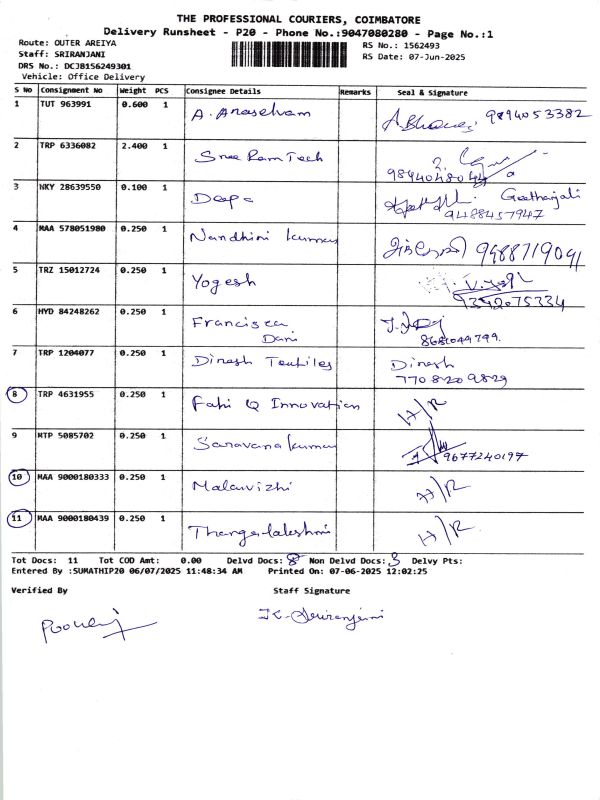 THE PROFESSIONAL COURIERS, COIMBATORE
Delivery Runsheet - P20 - Phone No.:9047080280 - Page No.:1
Route: OUTER AREIYA
RS No.: 1562493
Staff: SRIRANJANI
RS Date: 07-Jun-2025
DRS No.: DCJB156249301
Vehicle: Office Delivery
S No Consignment No Weight PCS Consignee Details Remarks Seal & Signature
1 TUT 963991 0.600 1 A. Anaselvam 9894053382
2 TRP 6336082 2.400 1 Sree Ram Tech
3 NKY 28639550 0.100 1 Deepa Geethanjali
9488457947
4 MAA 578051980 0.250 1 Nandhini kumar 9488719091
5 TRZ 15012724 0.250 1 Yogesh
9342075334
6 HYD 84248262 0.250 1 Francisca
Dani
8681049799.
7 TRP 1204077 0.250 1 Dinesh Textiles Dinesh
7708209829
8 TRP 4631955 0.250 1 Innovation H/R
9 MTP 5085702 0.250 1 Saravana kumar 9677240197
10 MAA 9000180333 0.250 1 Malarvizhi H/R
11 MAA 9000180439 0.250 1 Thangalakshmi H/R
Tot Docs: 11 Tot COD Amt: 0.00 Delvd Docs: 8 Non Delvd Docs: 3 Delvy Pts:
Entered By :SUMATHIP20 06/07/2025 11:48:34 AM Printed On: 07-06-2025 12:02:25
Verified By Staff Signature
K. Sriranjani